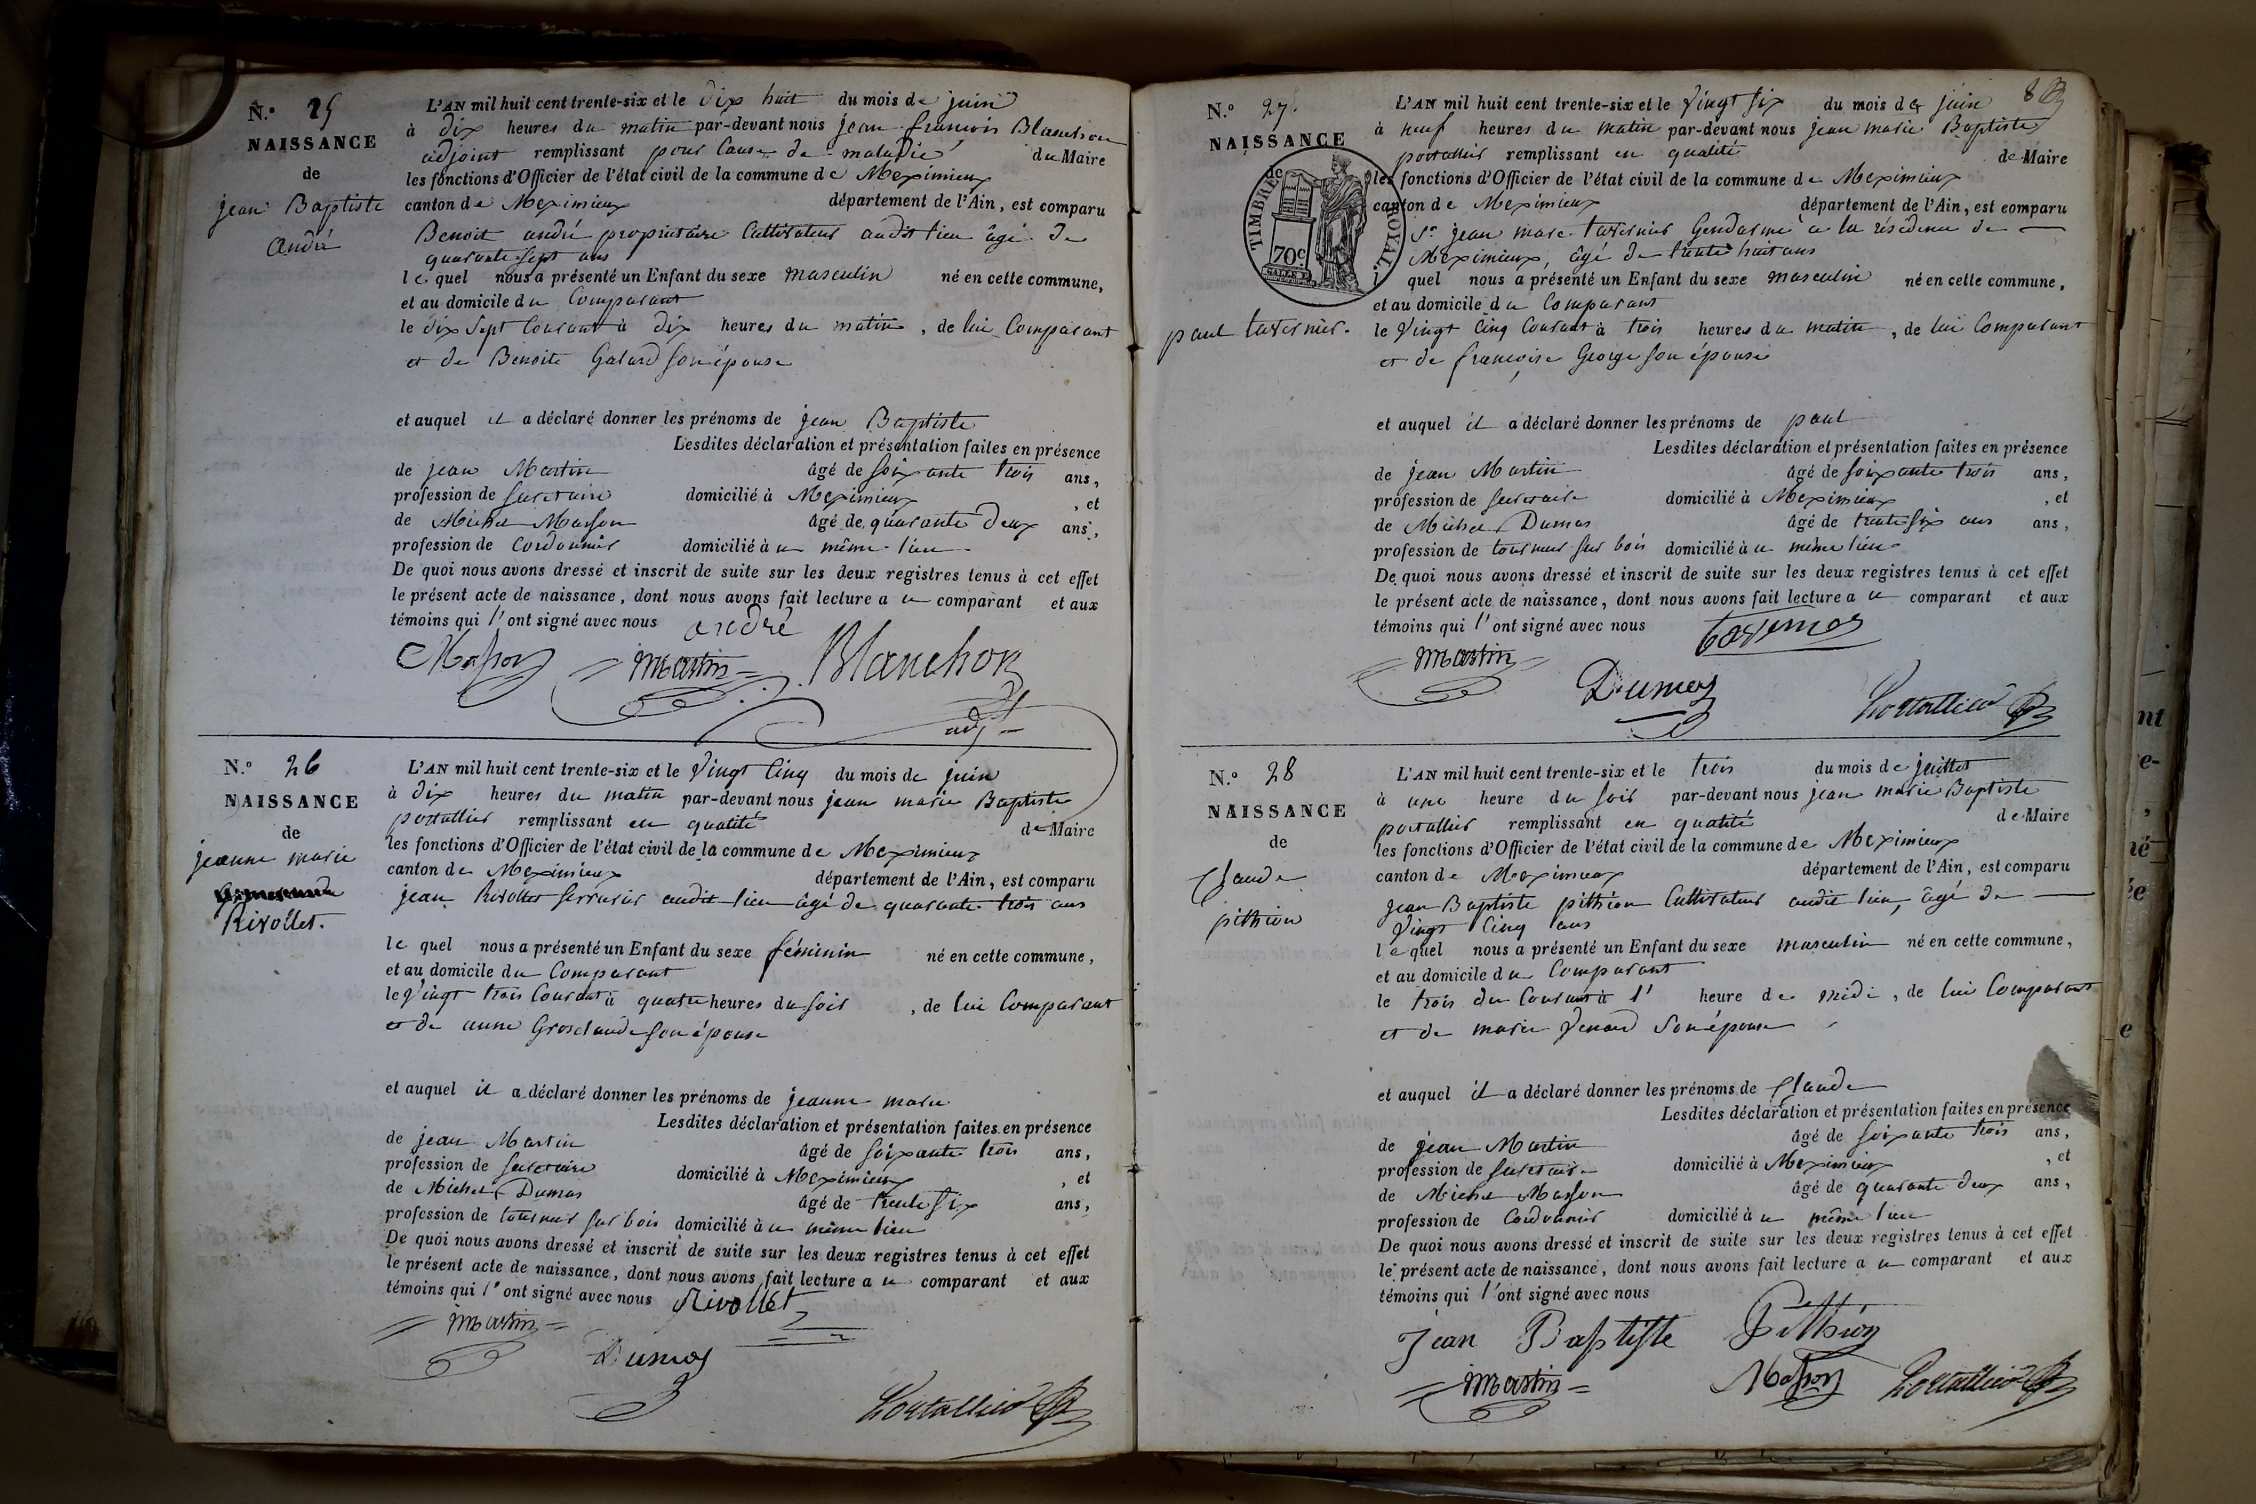 N.° 25
NAISSANCE
de
jean Baptiste
andré
L'AN mil huit cent trente-six et le dix huit du mois de juin
à dix heures du matin par-devant nous jean françois Blanchon
adjoint remplissant pour Cause de maladie du Maire
les fonctions d'Officier de l'état civil de la commune de Meximieux
canton de Meximieux département de l'Ain, est comparu
Benoit andré propriétaire Cultivateur audit lieu âgé de
quarante sept ans
lequel nous a présenté un Enfant du sexe masculin né en cette commune,
et au domicile du Comparant
le dix Sept Courant à dix heures du matin, de lui Comparant
et de Benoite Galard son épouse
et auquel il a déclaré donner les prénoms de jean Baptiste
Lesdites déclaration et présentation faites en présence
de jean Martin âgé de soixante trois ans,
profession de secretaire domicilié à Meximieux, et
de Michel Masson âgé de quarante deux ans,
profession de Cordonnier domicilié à u même lieu
De quoi nous avons dressé et inscrit de suite sur les deux registres tenus à cet effet
le présent acte de naissance, dont nous avons fait lecture a u comparant et aux
témoins qui l'ont signé avec nous andré
Masson Martin Blanchon
adj
N.° 26
NAISSANCE
de
jeanne marie
Rivollet.
L'AN mil huit cent trente-six et le Vingt Cinq du mois de juin
à dix heures du matin par-devant nous jean marie Baptiste
portallier remplissant en qualité de Maire
les fonctions d'Officier de l'état civil de la commune de Meximieux
canton de Meximieux département de l'Ain, est comparu
jean Rivollet serrurier audit lieu âgé de quarante trois ans
lequel nous a présenté un Enfant du sexe féminin né en cette commune,
et au domicile du Comparant
le Vingt trois Courant à quatre heures du soir, de lui Comparant
et de anne Grosclaude son épouse
et auquel il a déclaré donner les prénoms de jeanne marie
Lesdites déclaration et présentation faites en présence
de jean Martin âgé de soixante trois ans,
profession de secretaire domicilié à Meximieux, et
de Michel Dumas âgé de trente six ans,
profession de tourneur sur bois domicilié à u même lieu
De quoi nous avons dressé et inscrit de suite sur les deux registres tenus à cet effet
le présent acte de naissance, dont nous avons fait lecture a u comparant et aux
témoins qui l'ont signé avec nous Rivollet
Martin
Dumas
Portallier
8
N.° 27.
NAISSANCE
de
TIMBRE ROYAL.
70c
paul tavernier.
L'AN mil huit cent trente-six et le Vingt six du mois de juin
à neuf heures du matin par-devant nous jean marie Baptiste
portallier remplissant en qualité de Maire
les fonctions d'Officier de l'état civil de la commune de Meximieux
canton de Meximieux département de l'Ain, est comparu
Sr. jean marc tavernier Gendarme à la résidence de
Meximieux, âgé de trente huit ans
l quel nous a présenté un Enfant du sexe masculin né en cette commune,
et au domicile du Comparant
le Vingt Cinq Courant à trois heures du matin, de lui Comparant
et de françoise George son épouse
et auquel il a déclaré donner les prénoms de paul
Lesdites déclaration et présentation faites en présence
de jean Martin âgé de soixante trois ans,
profession de secretaire domicilié à Meximieux, et
de Michel Dumas âgé de trente six ans ans,
profession de tourneur sur bois domicilié à u même lieu
De quoi nous avons dressé et inscrit de suite sur les deux registres tenus à cet effet
le présent acte de naissance, dont nous avons fait lecture a u comparant et aux
témoins qui l'ont signé avec nous Tavernier
Martin
Dumas
Portallier
N.° 28
NAISSANCE
de
Claude
pithion
L'AN mil huit cent trente-six et le trois du mois de juillet
à une heure du soir par-devant nous jean marie Baptiste
portallier remplissant en qualité de Maire
les fonctions d'Officier de l'état civil de la commune de Meximieux
canton de Meximieux département de l'Ain, est comparu
jean Baptiste pithion Cultivateur audit lieu, âgé de
Vingt Cinq ans
lequel nous a présenté un Enfant du sexe masculin né en cette commune,
et au domicile du Comparant
le trois du Courant à l' heure de midi, de lui Comparant
et de marie Venard son épouse
et auquel il a déclaré donner les prénoms de Claude
Lesdites déclaration et présentation faites en présence
de jean Martin âgé de soixante trois ans,
profession de secretaire domicilié à Meximieux, et
de Michel Masson âgé de quarante deux ans,
profession de Cordonnier domicilié à u même lieu
De quoi nous avons dressé et inscrit de suite sur les deux registres tenus à cet effet
le présent acte de naissance, dont nous avons fait lecture a u comparant et aux
témoins qui l'ont signé avec nous
Jean Baptiste Pithion
Martin Masson Portallier